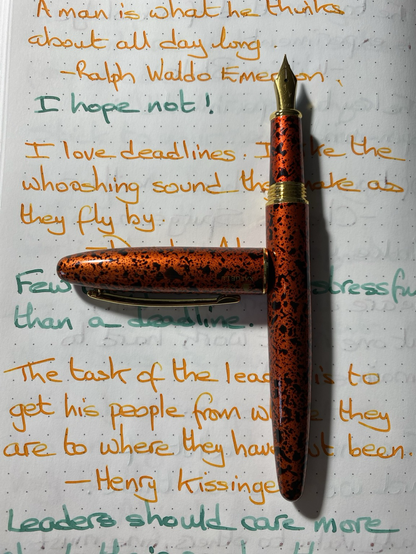 A man is what he thinks
about all day long
-Ralph Waldo Emerson.
I hope not!
I love deadlines. I like the
whooshing sound they make as
they fly by
Few stressful
than a deadline.
The task of the leader is to
get his people from where they
are to where they haven't been.
-Henry Kissinger
Leaders should care more